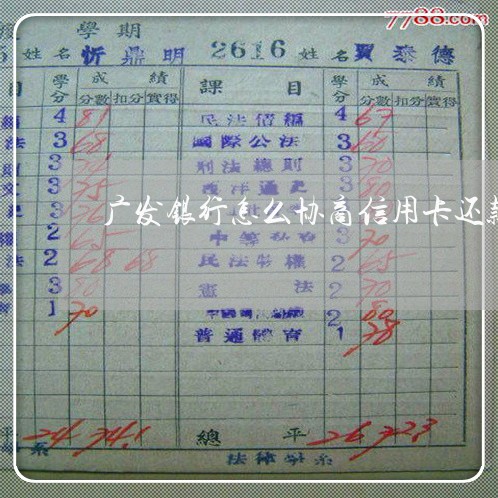 7788.com
學期
姓名忻鼎明 2616 姓名賈泰德
目 學分 成績 課目 學分 成績
分數 扣分 實得 分數 扣分 實得
4 81 民法債編 4 67
法 3 68 國際公法 3 60
3 刑法總則 3 70
3 75 西洋通史 3 80
3 76
广发银行怎么协商信用卡还款
2 65 3 70
法 2 68 68 民法物權 2 65
3 80 憲法 2 70
1 70 2 80
普通體育 1 78
平 24 74.1 總平 26 72.3
系 法律學系